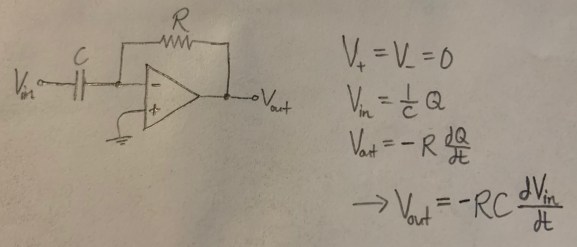 R
C
V_in
-
+
V_out
V_+ = V_- = 0
V_in = 1/C Q
V_out = -R dQ/dt
→ V_out = -RC dV_in/dt